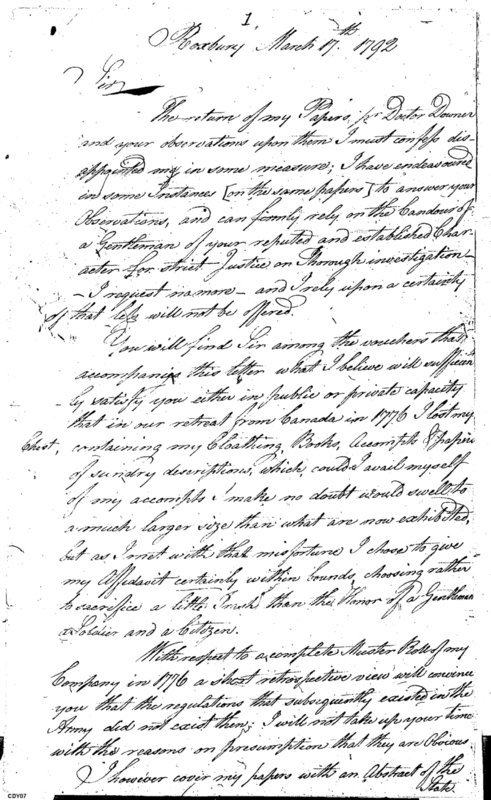 1
Roxbury March 17th. 1792
Sir,
The return of my Papers, pr Doctor Downer
and your observations upon them I must confess dis-
appointed me in some measure; I have endeavoured
in some Instances [on the same papers] to answer your
Observations, and can firmly rely on the Candour of
a Gentleman of your reputed and established Char-
acter for strict Justice on Thorough investigation-
- I request no more - and I rely upon a certainty
of that less will not be offered.
You will find Sir among the vouchers that
accompany this letter what I believe will sufficient-
ly satisfy you either in public or private capacity
that in our retreat from Canada in 1776 I lost my
Chest, containing my Cloathing Books, Accompts & papers
of sundry descriptions, which, could I avail myself
of my accompts I make no doubt would swell to
a much larger size than what are now exhibited,
but as I met with that misfortune I chose to give
my Affidavit certainly within bounds, choosing rather
to sacrifice a little Trash than the Honor of a Gentleman
a Soldier and a Citizen.
With respect to a complete Muster Roll of my
Company in 1776 a short retrospective view will convince
you that the regulations that subsequently existed in the
Army did not exist then; I will not take up your time
with the reasons on presumption that they are Obvious
I however cover my papers with an Abstract of the
State
CDY07